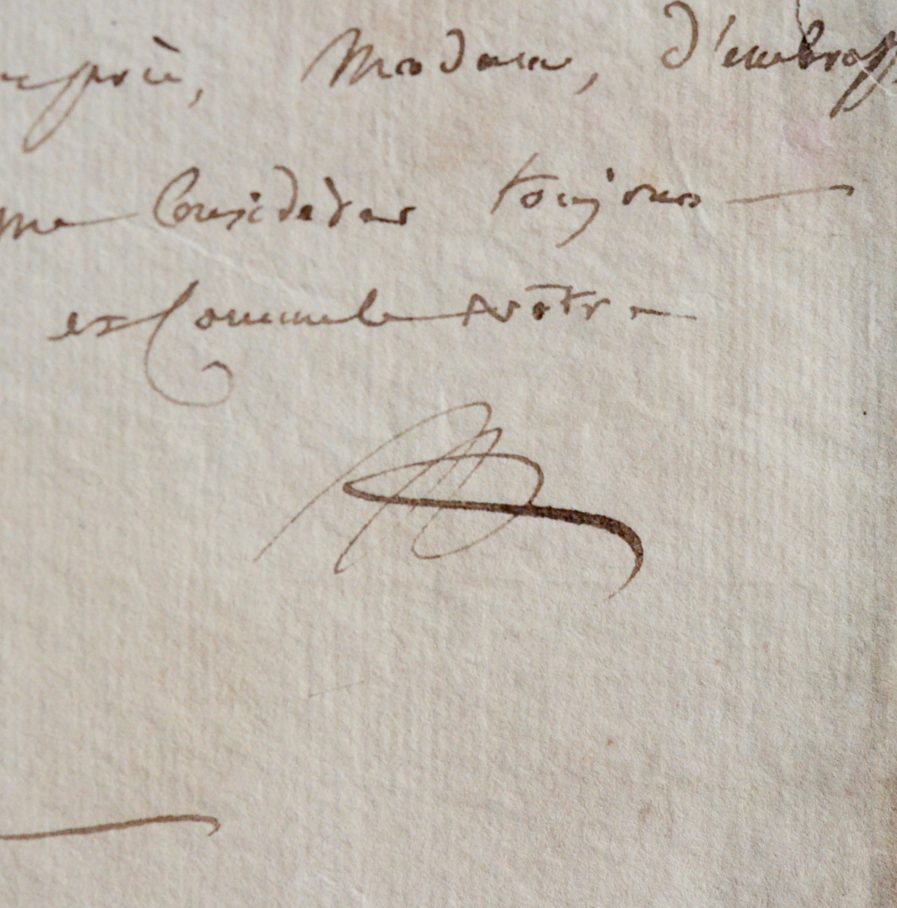 Madame, d'embrass
me Considérer toujours —
et Comme le vôtre